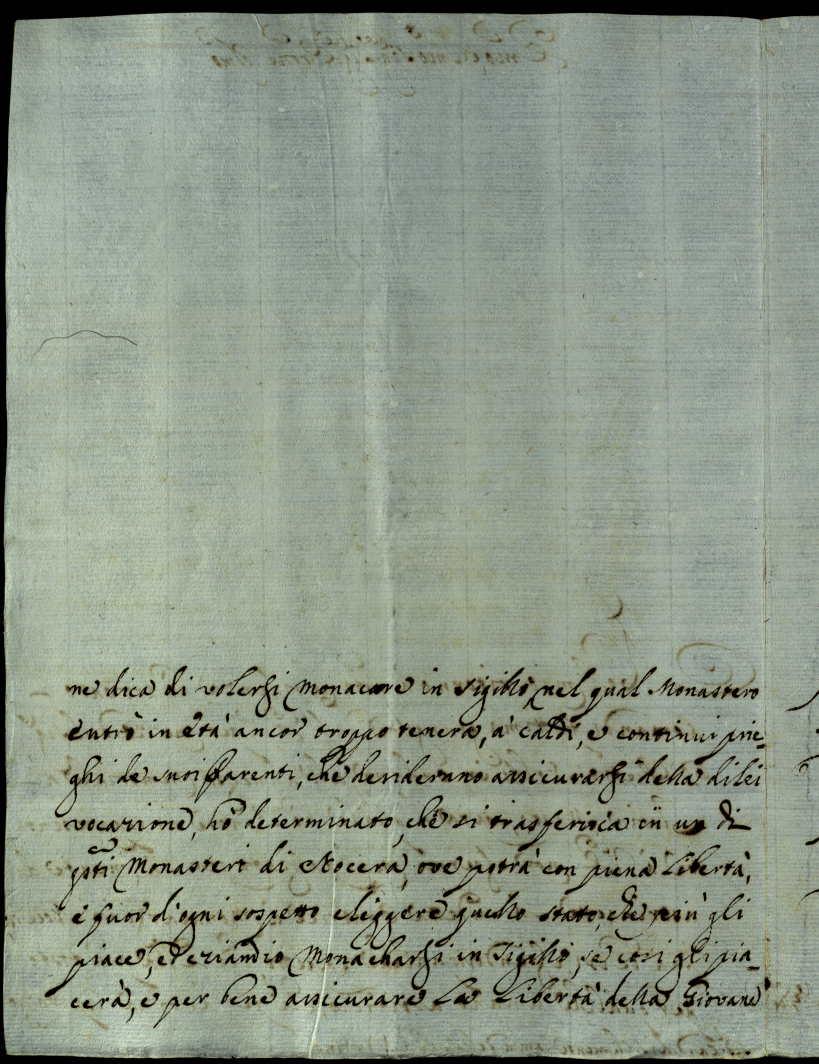 ne dica di volersi monacare in Sigillo, nel qual Monastero
entrò in età ancor troppo tenera, a' caldi, e continui prie-
ghi de suoi Parenti, che desiderano assicurarsi della dilei
vocazione, hò determinato, che si trasferisca in un di
qsti Monasteri di Nocera, ove potrà con piena Libertà,
e fuor d'ogni sospetto eleggere quello stato, che più gli
piace, et eziandio Monacharsi in Sigillo, se così gli pia-
cerà, e per bene assicurare La Libertà della Giovane